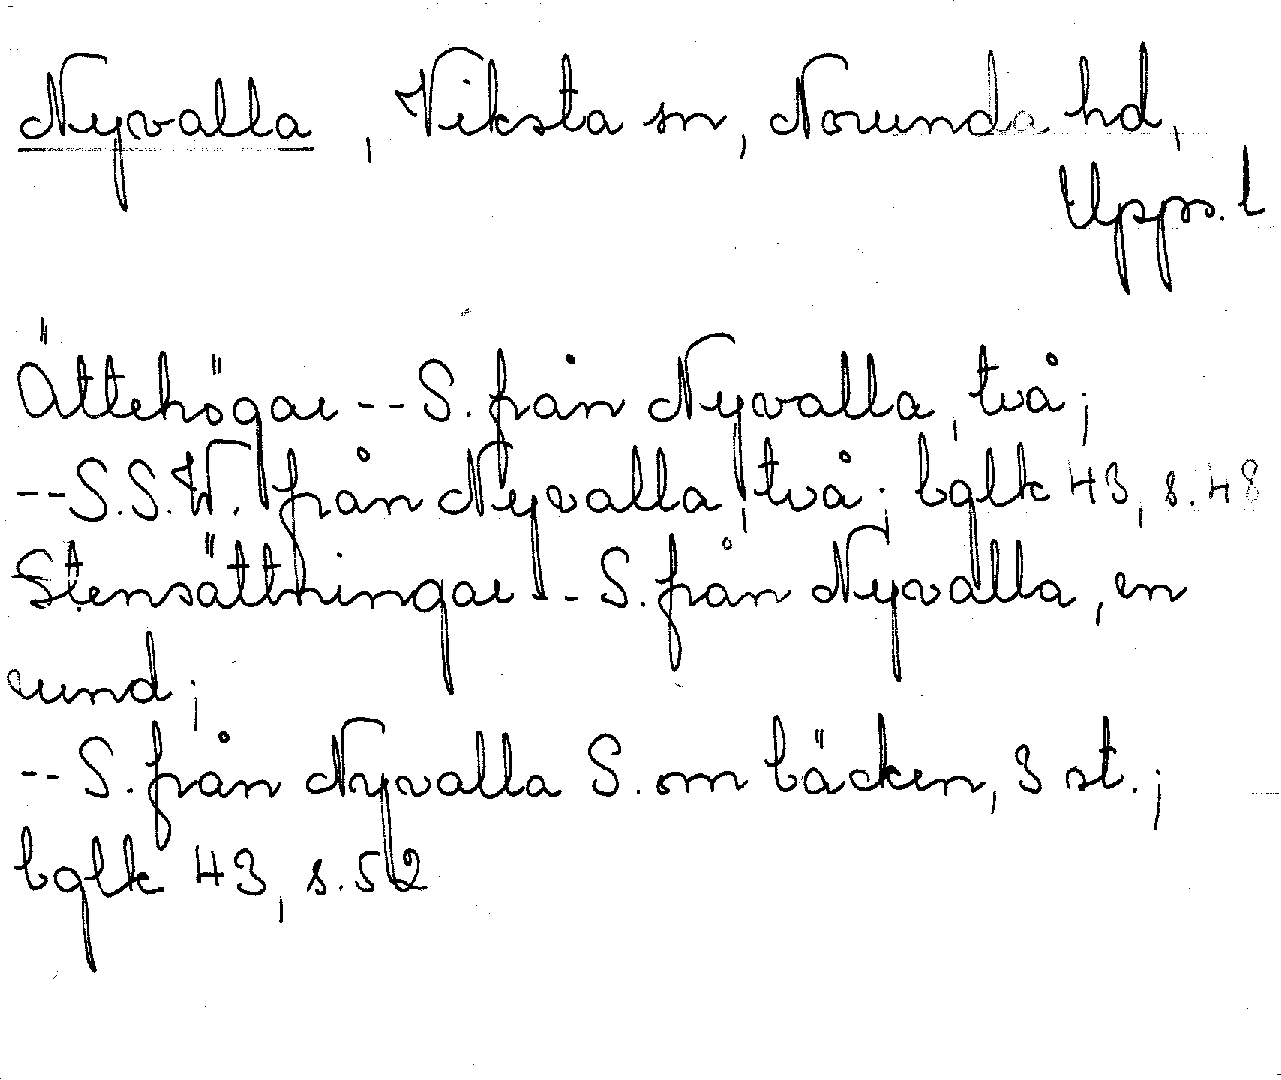 Nyvalla, Viksta sn, Norunda hd,
Upps. l
Ättehögar -- S. från Nyvalla, två;
-- S.S.W. från Nyvalla, två; bglk 43, s. 48
Stensättningar -- S. från Nyvalla, en
rund;
-- S. från Nyvalla S. om bäcken, 3 st.;
bglk 43, s. 52